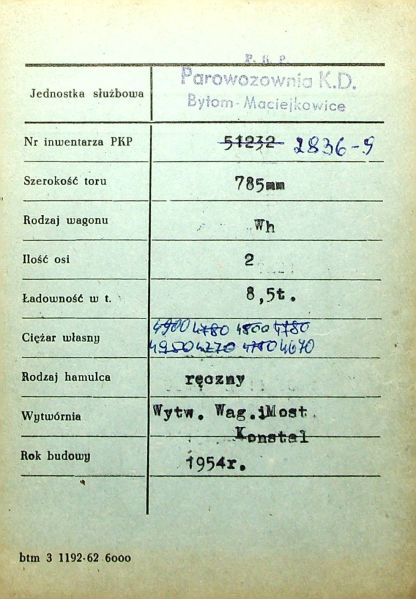 P. K. P.
Parowozownia K.D.
Bytom-Maciejkowice
Jednostka służbowa
Nr inwentarza PKP 51232 2836-9
Szerokość toru 785mm
Rodzaj wagonu Wh
Ilość osi 2
Ładowność w t. 8,5t.
Ciężar własny 4900 4780 4800 4780
4950 4270 4780 4670
Rodzaj hamulca ręczny
Wytwórnia Wytw. Wag.iMost
Konstal
Rok budowy 1954r.
btm 3 1192-62 6000